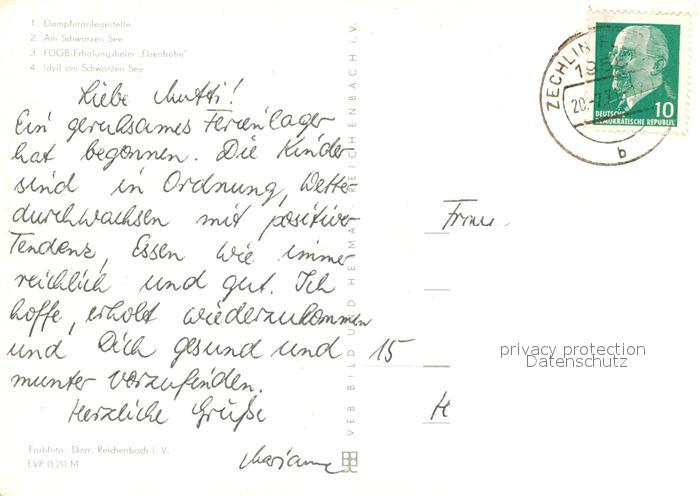 1. Dampferanlegestelle
2. Am Schwarzen See
3. FDGB-Erholungsheim „Elsenhöhe"
4. Idyll am Schwarzen See
Liebe Mutti!
Ein geruhsames Ferienlager
hat begonnen. Die Kinder
sind in Ordnung, Wetter
durchwachsen mit positiver
Tendenz, Essen wie immer
reichlich und gut. Ich
hoffe, erholt wiederzukommen
und Dich gesund und
munter vorzufinden.
Herzliche Grüße
Marianne
Farbfoto: Darr, Reichenbach i. V.
EVP 0,20 M
VEB BILD UND HEIMAT REICHENBACH I. V.
ZECHLIN
20.-7.
b
10
DEUTSCHE
DEMOKRATISCHE REPUBLIK
Frau
15
H
privacy protection
Datenschutz